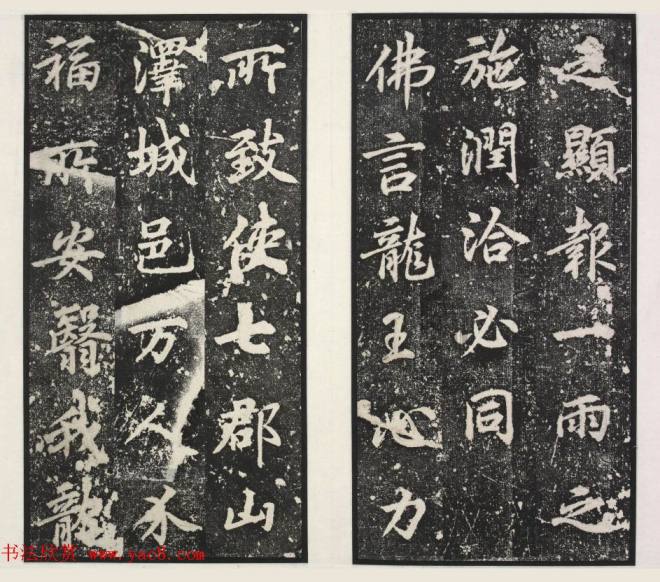 之顯報一雨之
施潤洽必同
佛言龍王心力
所致使七郡山
澤城邑万人水
福所安醫我龍
书法欣赏 www.yac8.com